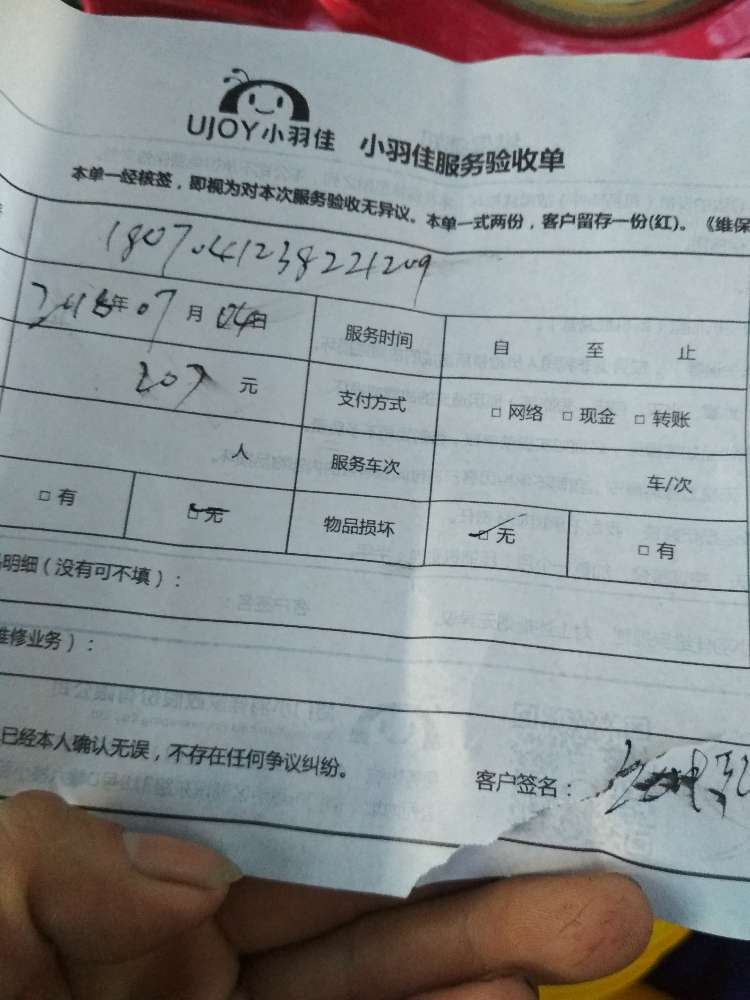 UJOY小羽佳 小羽佳服务验收单
本单一经核签，即视为对本次服务验收无异议。本单一式两份，客户留存一份(红)。《维保
1807041238221209
2018年07月04日 服务时间 自 至 止
207元 支付方式 □ 网络 □ 现金 □ 转账
人 服务车次 车/次
□ 有 □ 无 物品损坏 □ 无 □ 有
明细（没有可不填）：
维修业务）：
已经本人确认无误，不存在任何争议纠纷。
客户签名：